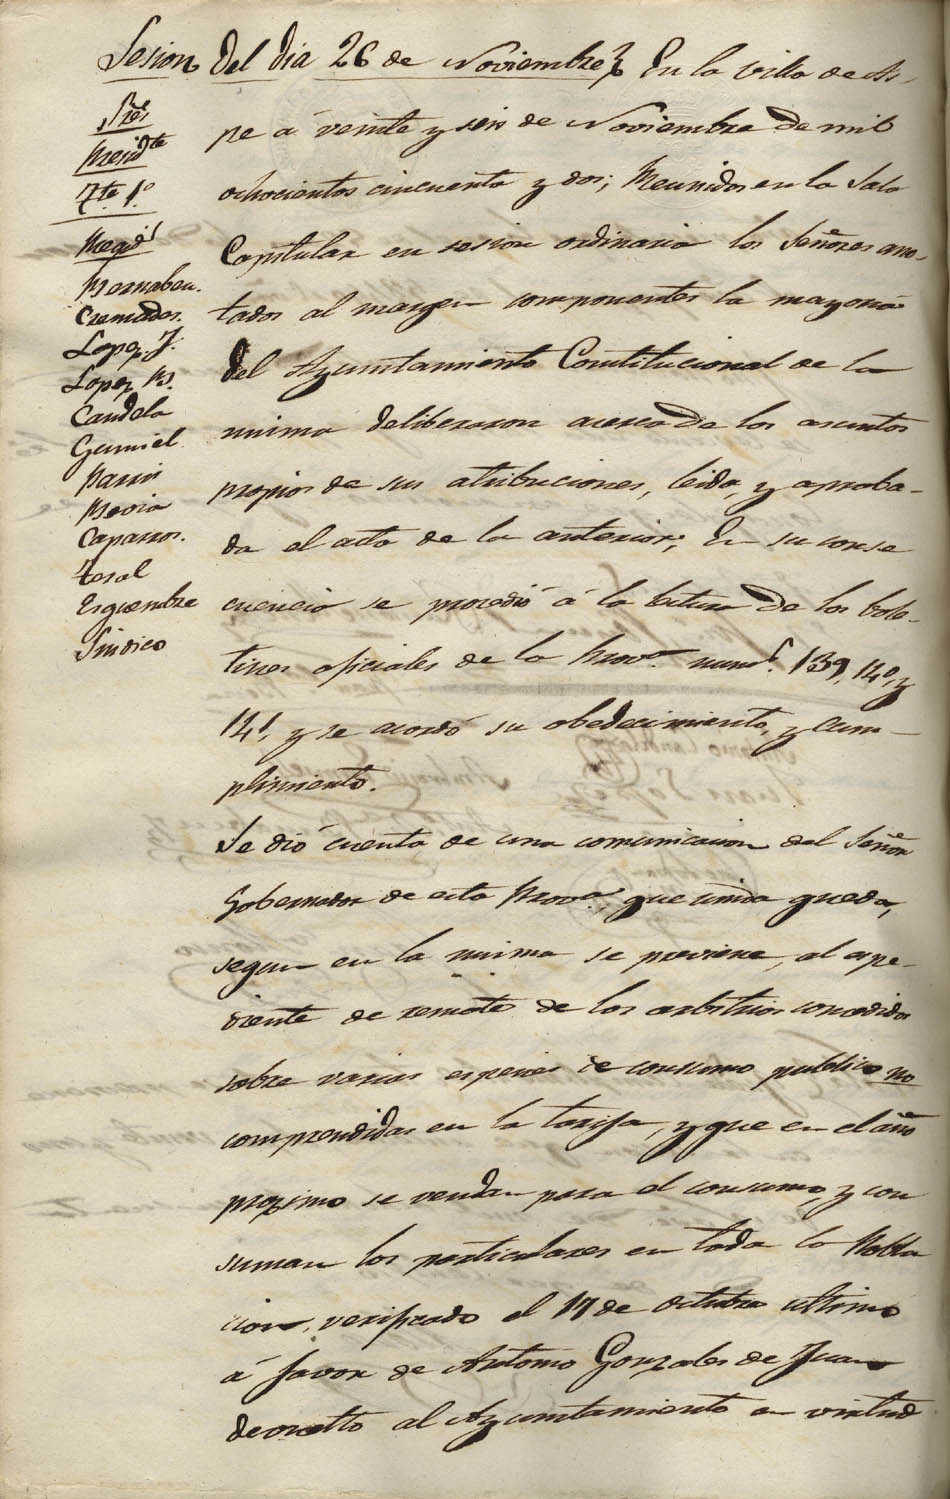 Sesion del dia 26 de Noviembre} En la villa de As-
Sres
Presidte
Tte 1.º
Regids
Bernabeu.
Cremades.
Lopez J.
Lopez B.
Candela
Gumiel
Pavia
Caparros.
Teral
Esquembre
Sindico
pe á veinte y seis de Noviembre de mil
ochocientos cincuenta y dos; Reunidos en la Sala
Capitular en sesion ordinaria los Señores ano-
tados al margen componentes la mayoria
del Ayuntamiento Constitucional de la
misma deliberaron acerca de los asuntos
propios de sus atribuciones, leida, y aproba-
da el acta de la anterior; En su conse
cuencia se procedió á la lectura de los bole-
tines oficiales de la Prov.ª nums. 139, 140, y
141, y se acordó su obedecimiento, y cum-
plimiento.
Se dió cuenta de una comunicacion del Señor
Gobernador de esta Prov.ª, que unida queda,
segun en la misma se previene, al espe-
diente de remate de los arbitrios concedidos
sobre varias especies de consumo publico no
comprendidas en la tarifa, y que en el año
proximo se vendan para el consumo, y con
suman los particulares en toda la Pobla
cion, verificado el 17 de octubre ultimo
á favor de Antonio Gonzales de Juan
devuelto al Ayuntamiento en virtud